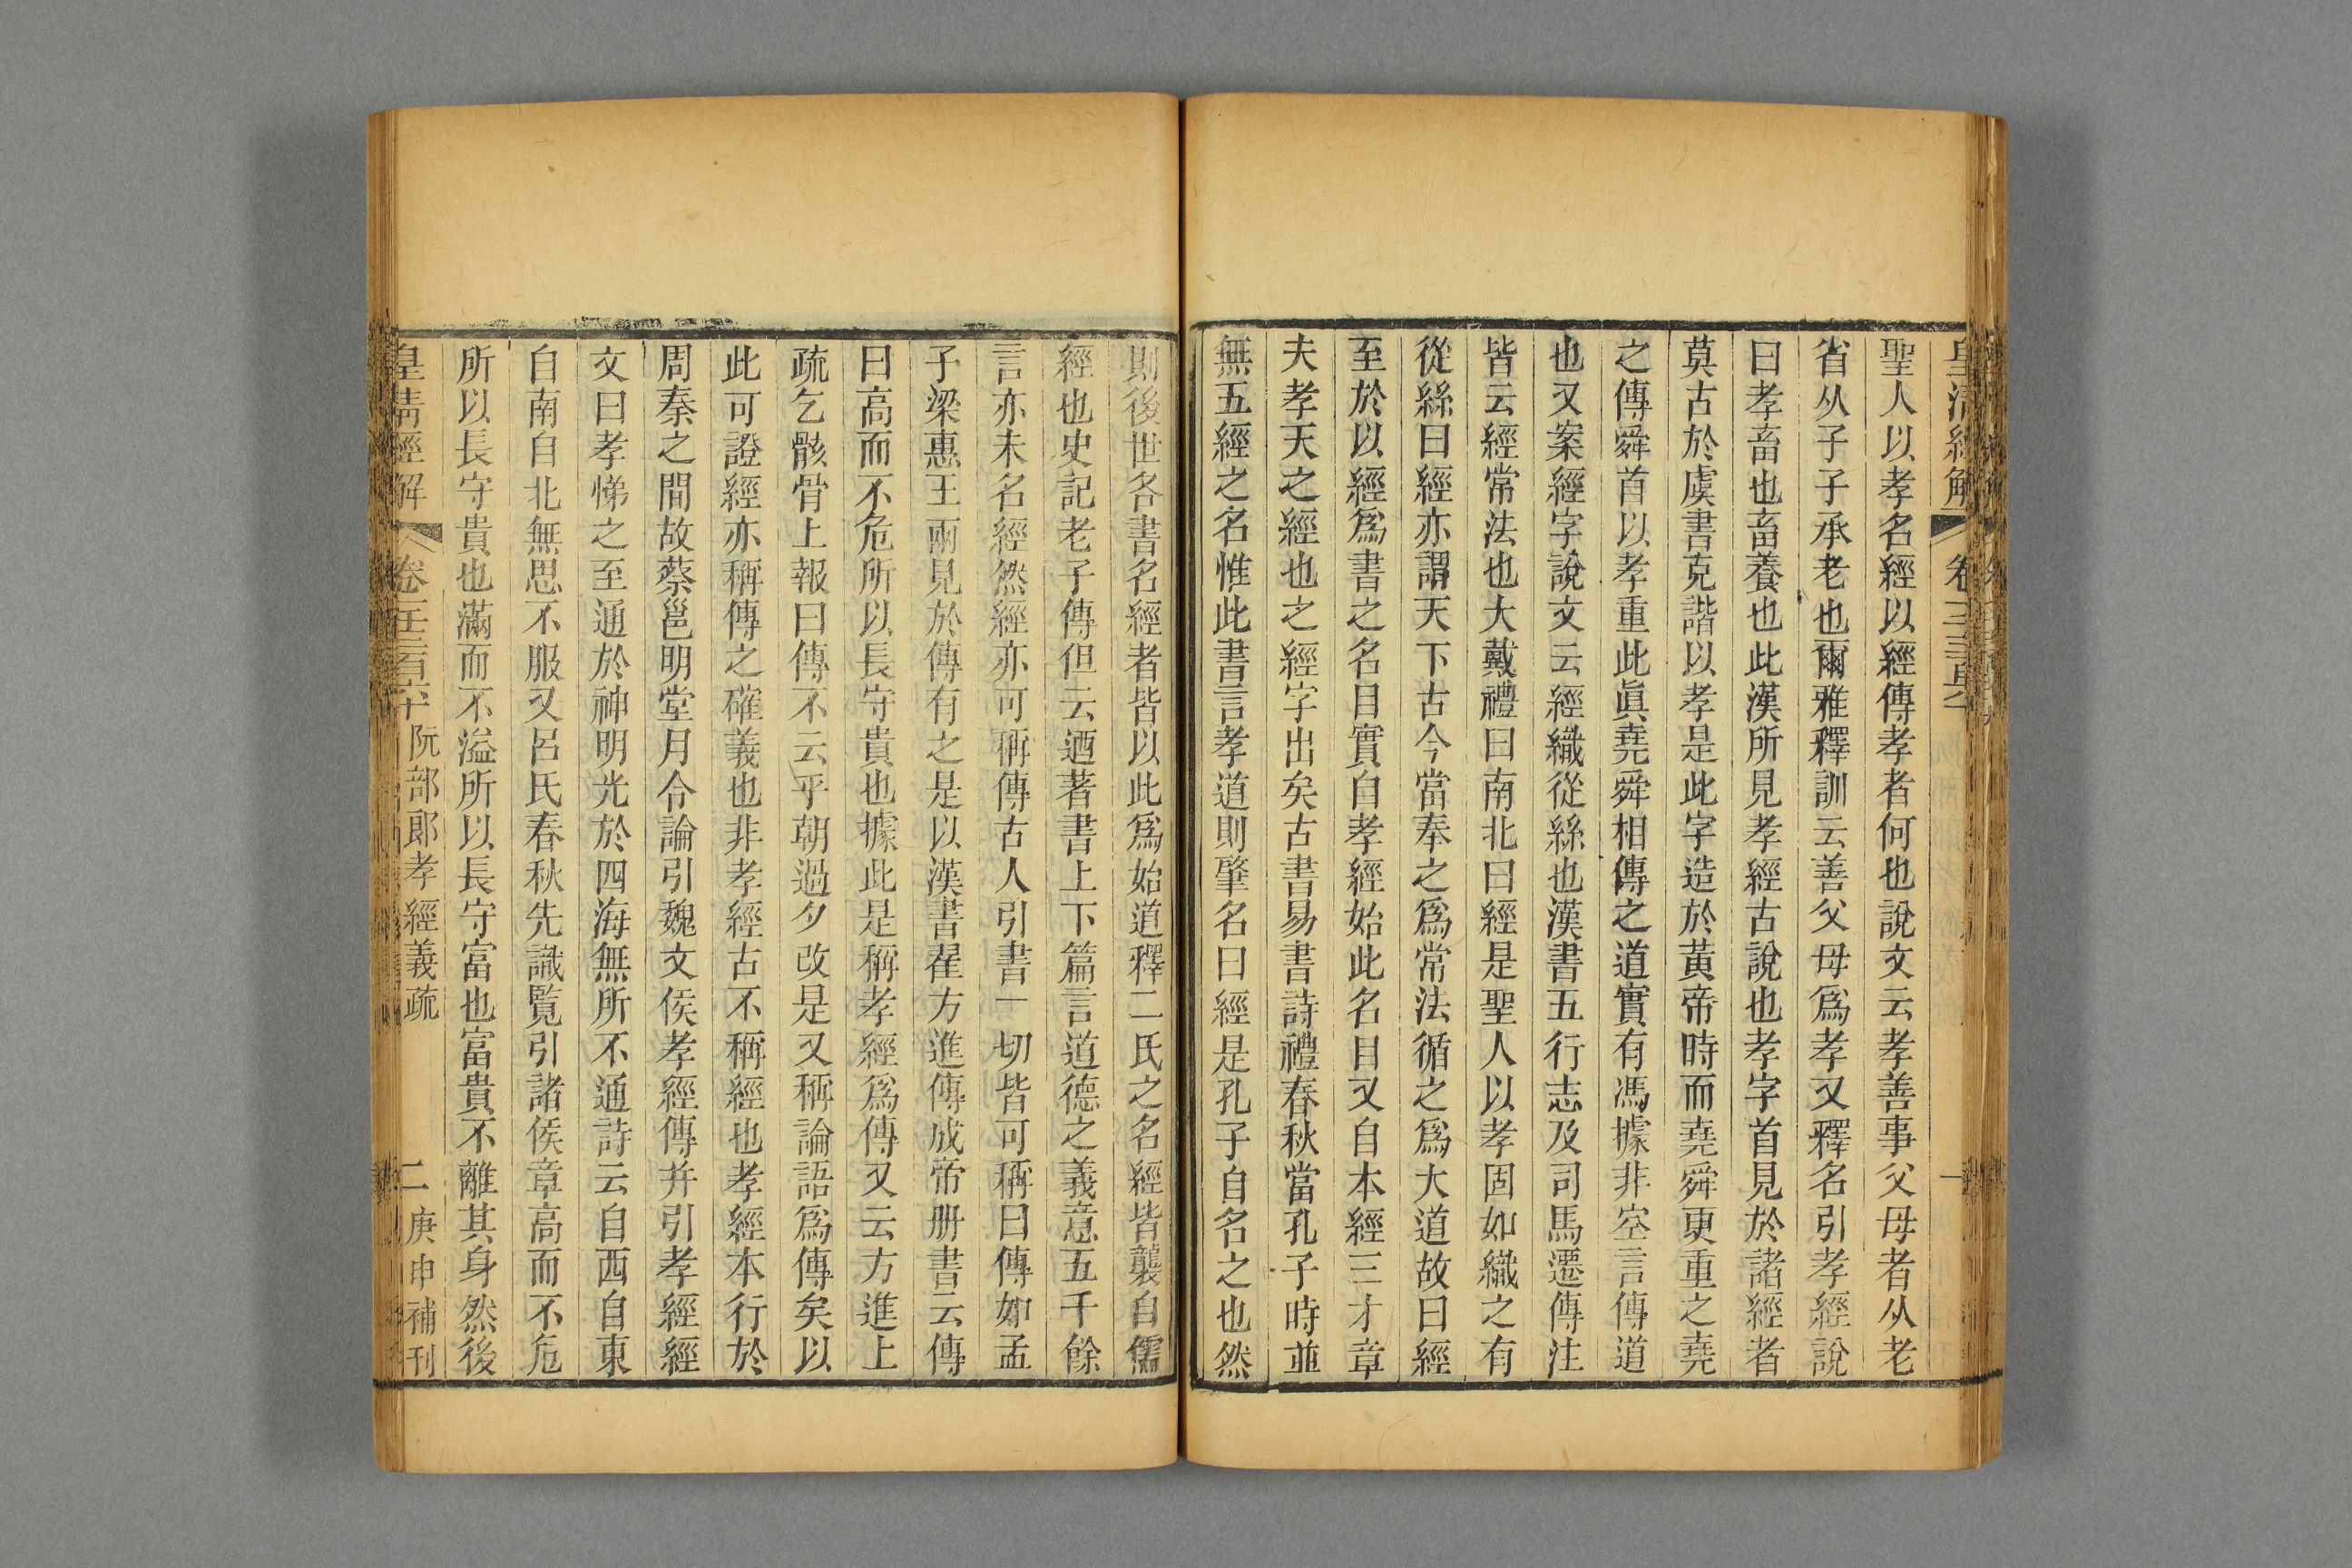 聖人以孝名經以經傳孝者何也說文云孝善事父母者从老
省从子子承老也爾雅釋訓云善父母爲孝又釋名引孝經說
曰孝畜也畜養也此漢所見孝經古說也孝字首見於諸經者
莫古於虞書克諧以孝是此字造於黃帝時而堯舜更重之堯
之傳舜首以孝重此眞堯舜相傳之道實有馮據非空言傳道
也又案經字說文云經織從絲也漢書五行志及司馬遷傳注
皆云經常法也大戴禮曰南北曰經是聖人以孝固如織之有
從絲曰經亦謂天下古今當奉之爲常法循之爲大道故曰經
至於以經爲書之名目實自孝經始此名目又自本經三才章
夫孝天之經也之經字出矣古書易書詩禮春秋當孔子時並
無五經之名惟此書言孝道則肇名曰經是孔子自名之也然
則後世各書名經者皆以此爲始道釋二氏之名經皆襲自儒
經也史記老子傳但云迺著書上下篇言道德之義意五千餘
言亦未名經然經亦可稱傳古人引書一切皆可稱曰傳如孟
子梁惠王兩見於傳有之是以漢書翟方進傳成帝册書云傳
曰高而不危所以長守貴也據此是稱孝經爲傳又云方進上
疏乞骸骨上報曰傳不云乎朝過夕改是又稱論語爲傳矣以
此可證經亦稱傳之確義也非孝經古不稱經也孝經本行於
周秦之間故蔡邕明堂月令論引魏文侯孝經傳并引孝經經
文曰孝悌之至通於神明光於四海無所不通詩云自西自東
自南自北無思不服又呂氏春秋先識覽引諸侯章高而不危
所以長守貴也滿而不溢所以長守富也富貴不離其身然後
皇清經解 卷千三百六十 阮部郎孝經義疏 二 庚申補刊